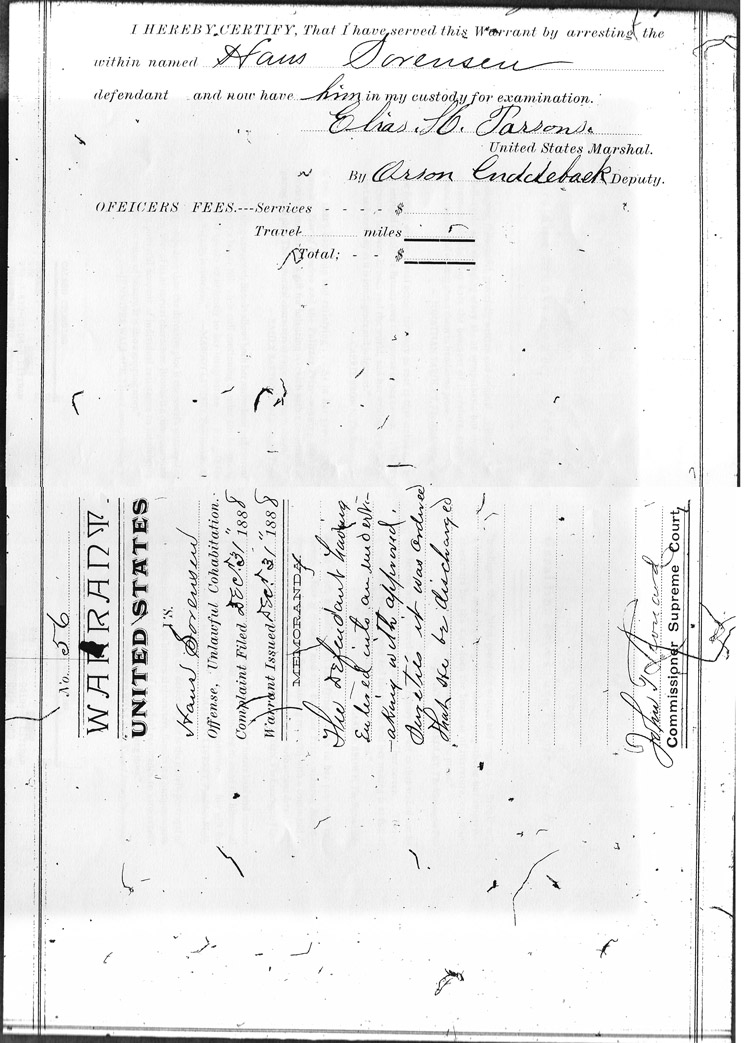 I HEREBY CERTIFY, That I have served this Warrant by arresting the
within named Hans Sorensen
defendant and now have him in my custody for examination.
Elias H. Parsons.
United States Marshal.
By Orson Deputy.
OFEICERS FEES.---Services - - - - $
Travel miles
Total; - - $
No. 56
WARRANT
UNITED STATES
VS.
Hans Sorensen
Offense, Unlawful Cohabitation.
Complaint Filed Dec. 31" 1888
Warrant Issued Dec. 31" 1888
MEMORANDA.
The Defendant having
Entered into an undert-
aking with approved
Sureties it was ordered
that he be discharged
John T
Commissioner Supreme Court,